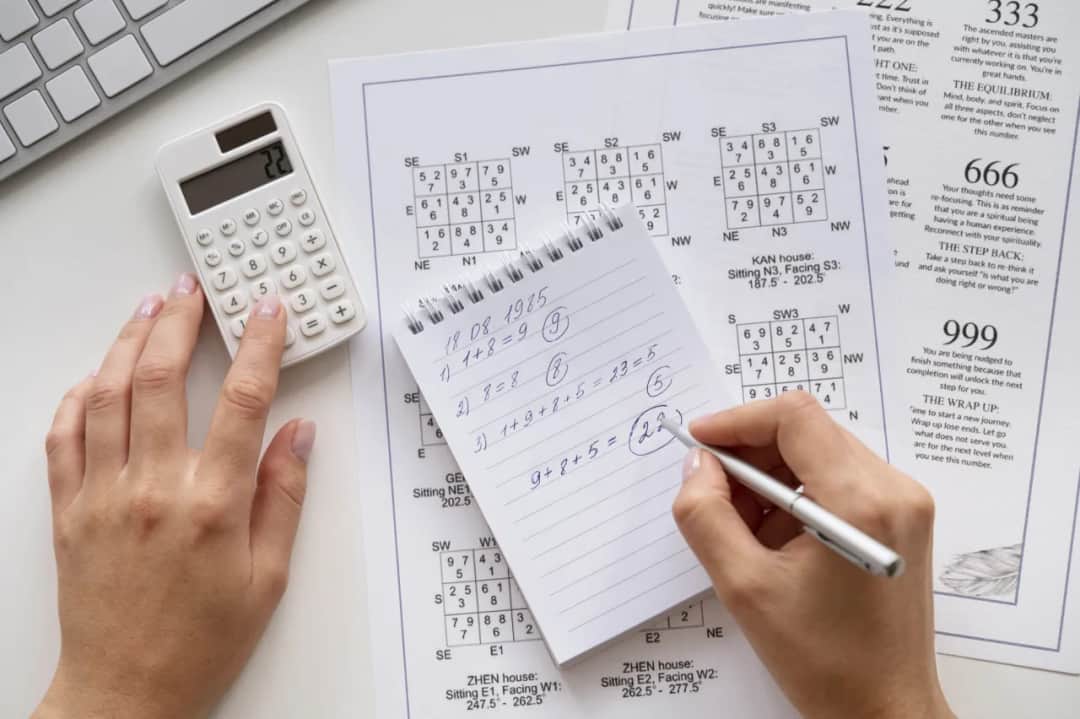 22
7
8
9
÷
4
5
6
×
1
3
−
=
+
18 08 1985
1) 1+8=9 9
2) 8=8 8
3) 1+9+8+5=23=5
5
9+8+5= 22
SE S1 SW
5 2 9 7 7 9
7 3 5
E 6 1 4 3 2 5 W
6 8 1
1 6 8 8 3 4
2 4 9
NE N1
SE S2 SW
3 4 8 8 1 6
7 3 5
E 2 5 4 3 6 1 W
6 8 6
5 2
9
NW
SE S3 SW
3 4 8 8 1 6
7 3 5
E 2 5 4 3 6 1 W
6 8 6
7 9 9 7 5 2
2 4 9
NE N3 NW
KAN house:
Sitting N3, Facing S3:
187.5° - 202.5°
S SW3 W
6 9 8 2 4 7
3 5 1
SE 1 4 2 5 3 6 NW
7 8 9
9 3 7 1
4
N
SE
4
6
E
Sitting NE1
202.5°
SW W1
9 7 4 3
5 1
S 2 5 6 1
3 8
7 9 8 8 3
7 6 2
SE E1
ZHEN house:
Sitting E1, Facing W1:
247.5° - 262.5°
2
E2 NE
ZHEN house:
Sitting E2, Facing W2:
262.5° - 277.5°
are manifesting
quickly! Make sure
focusing
222
Everything is
as it's supposed
you are on the
path.
HT ONE:
time. Trust in
Don't think of
want when you
ahead
is for
are for
getting
und
333
The ascended masters are
right by you, assisting you
with whatever it is that you're
currently working on. You're in
great hands.
THE EQUILIBRIUM:
Mind, body, and spirit. Focus on
all three aspects, don't neglect
one for the other when you see
this number.
666
Your thoughts need some
re-focusing. This is as reminder
that you are a spiritual being
having a human experience.
Reconnect with your spirituality.
THE STEP BACK:
Take a step back to re-think it
and ask yourself "is what you are
doing right or wrong?"
999
You are being nudged to
finish something because that
completion will unlock the next
step for you.
THE WRAP UP:
Time to start a new journey.
Wrap up lose ends. Let go
what does not serve you.
are for the next level when
you see this number.